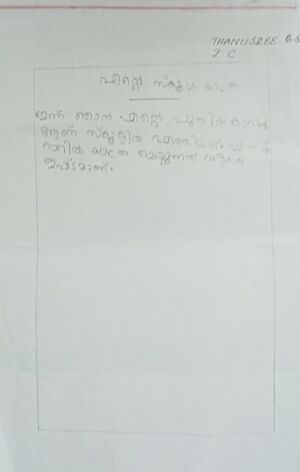 THANUSREE G S
2 C
എന്റെ സ്കൂൾ യാത്ര
ഇന്ന് ഞാൻ എന്റെ പുതിയ കാറിൽ
ആണ് സ്കൂളിൽ എത്തിയത്. എനിക്ക്
കാറിൽ യാത്ര ചെയ്യുന്നത് വളരെ
ഇഷ്ടമാണ്.